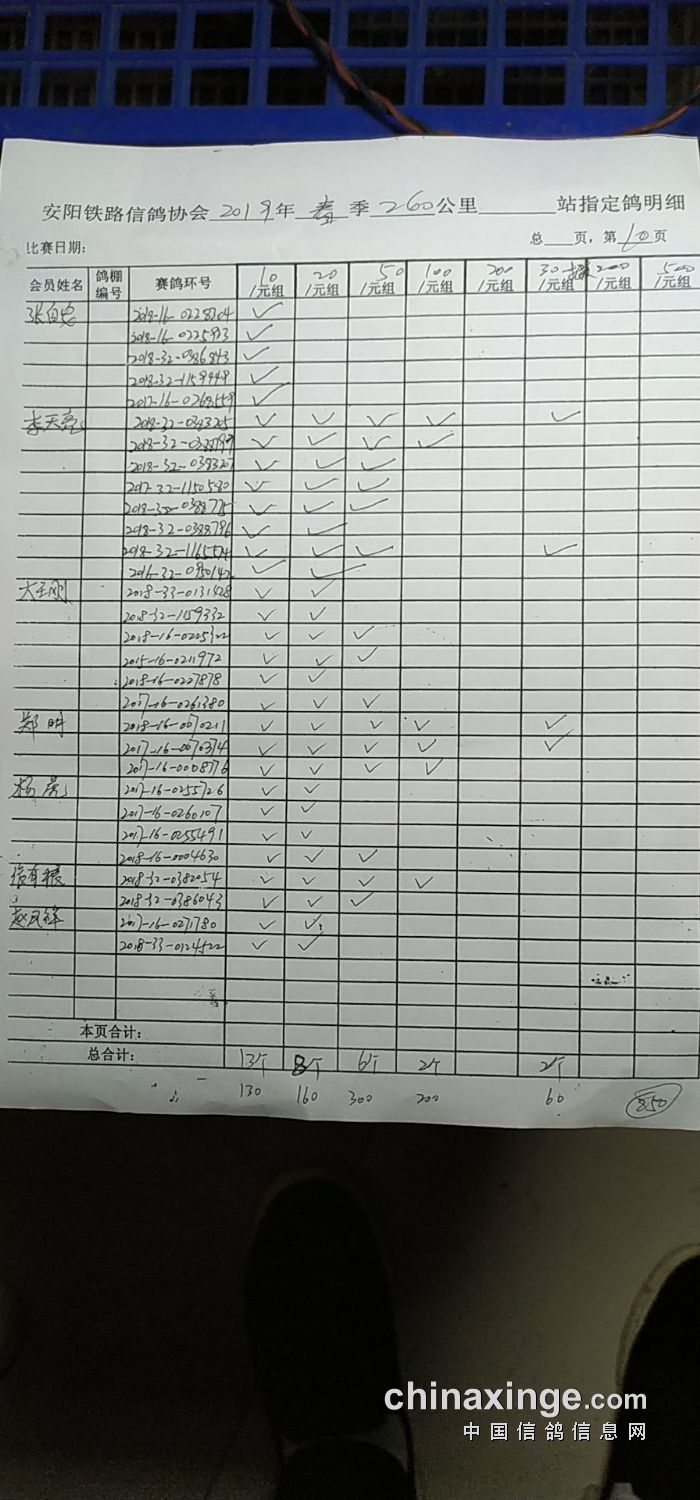 安阳铁路信鸽协会 2019年 春 季 260公里 站指定鸽明细
比赛日期: 总 页,第 10 页
会员姓名 鸽棚编号 赛鸽环号 10/元组 20/元组 50/元组 100/元组 200/元组 30 /元组 200/元组 500/元组
2018-16-0228304 ✓
2018-16-0225923 ✓
2018-32-0386843 ✓
2018-32-1159448 ✓
2017-16-0268559 ✓
李天亮 ✓ ✓ ✓ ✓ ✓
✓ ✓ ✓ ✓
✓ ✓ ✓
2017-32-1150580 ✓ ✓ ✓
2018-32-0388775 ✓ ✓ ✓
2018-32-0388796 ✓ ✓
2018-32-1165574 ✓ ✓ ✓ ✓
2016-32-0950142 ✓ ✓
2018-33-0131428 ✓ ✓
2018-32-1159332 ✓ ✓
2018-16-0225322 ✓ ✓ ✓
2015-16-0211972 ✓ ✓ ✓
2018-16-0227878 ✓ ✓
2017-16-0261380 ✓ ✓ ✓
郑明 2018-16-0070211 ✓ ✓ ✓ ✓ ✓
2017-16-0070374 ✓ ✓ ✓ ✓ ✓
2017-16-0008776 ✓ ✓ ✓ ✓
杨 2017-16-0255726 ✓ ✓
2017-16-0260107 ✓ ✓
2017-16-0255491 ✓ ✓
2018-16-0004630 ✓ ✓ ✓
2018-32-0382054 ✓ ✓ ✓ ✓
2018-32-0386043 ✓ ✓ ✓
赵风锋 2017-16-0271780 ✓ ✓
2018-33-0124522 ✓ ✓
本页合计:
总合计: 13个 8个 6个 2个 2个
130 160 300 200 60 850
chinaxinge.com
中国信鸽信息网